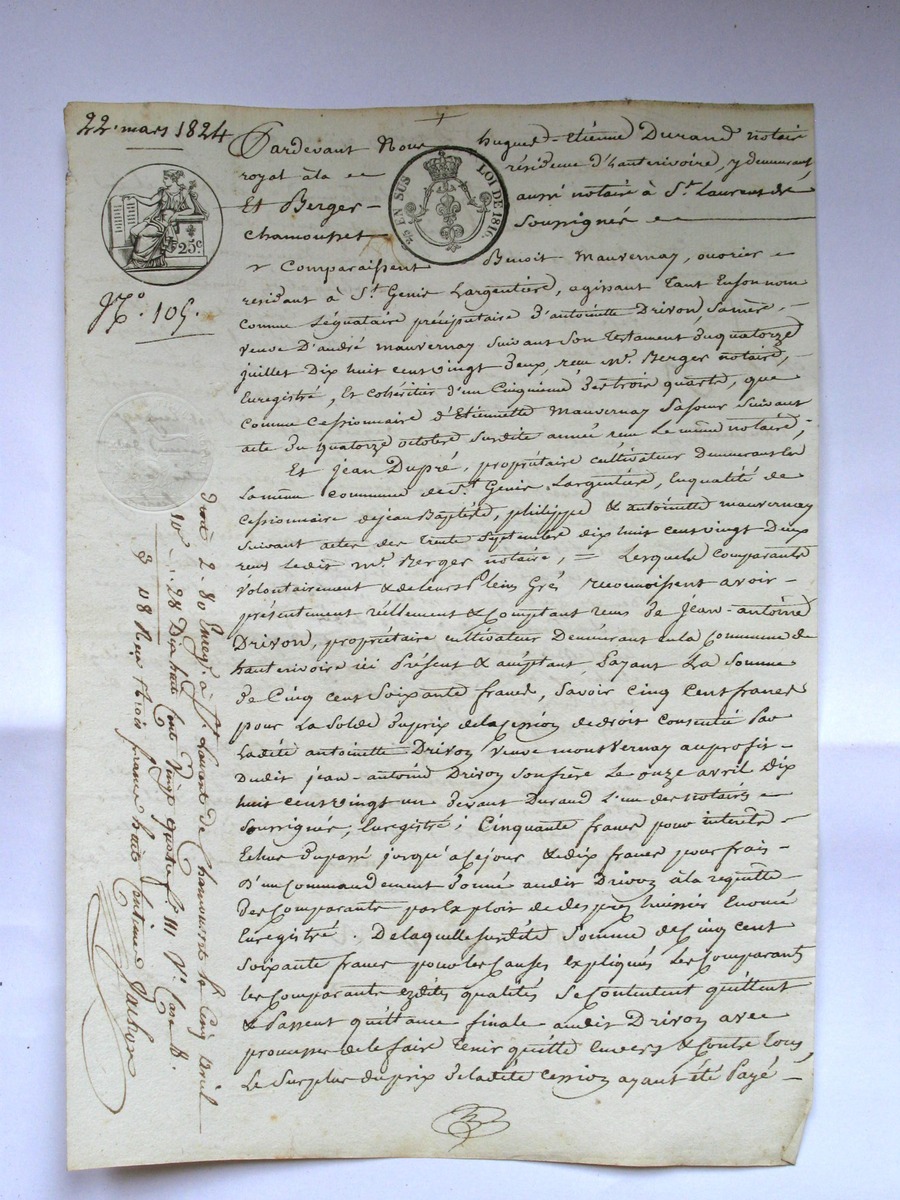 22. mars 1824
Pardevant Nous hugues-Etienne Durand notaire
royal à la résidence d'hauterivoire, y demeurant
Et Berger aussi notaire à St. Laurent de
Chamousset Soussignés
EN SUS LOI DE 1816.
25c
No. 105.
Comparaissent Benoit Mauvernay, ouvrier
residant à St. Genis Largentiere, agissant tant En son nom
comme Légataire précipuitaire d'antoinette Drivon, Sa mère,
veuve D'andré mauvernay suivant son Testament du quatorze
juillet Dix huit cent vingt deux, reçu Me. Berger notaire,
Enregistré, Et cohéritier d'un Cinquieme des trois quarts, que
comme Cessionnaire d'Etiennette Mauvernay Sa sœur suivant
acte du quatorze octobre susdite année reçu Le même notaire;
Et Jean Dupré, propriétaire cultivateur Demeurant En
La même commune de St. Genis Largentière, En qualité de
Cessionnaire de jean Baptiste, philippe & antoinette mauvernay
suivant actes des trente septembre dix huit cent vingt Deux
reçus Ledit Me. Berger notaire, = Lesquels comparants
volontairement & de leurs pleins Grés reconnoissent avoir
présentement réellement & Comptant reçus de Jean-antoine
Drivon, propriétaire cultivateur Demeurant en la Commune de
hauterivoire ici Présent & acceptant Payant La Somme
de Cinq cent Soixante francs, savoir Cinq Cent francs
pour La Solde du prix de la Cession de droit Consenti Par
Ladite antoinette Drivon veuve mouvernay au profit
Dudit jean-antoine Drivon son frère Le onze avril Dix
huit cent vingt un devant Durand L'un des notaires
Soussignés, Enregistré; Cinquante francs pour interets
Echus du passé jusqu'à ce jour & dix francs pour frais
D'un Commandement donné audit Drivon à la requette
des Comparants par Exploit de despres huissier
Enregistré. De laquelle susdite Somme de Cinq cent
Soixante francs pour les Causes expliqués Les Comparants
Les Comparants ezdites qualités Se Contentent quittent
& Passent quittance finale audit Drivon avec
promesse de le faire tenir quitte Envers & Contre tous,
Le Surplus du prix De ladite Cession ayant été Payé
droit à 2. 80 Enregé. à St Laurent de Chamousset le Cinq avril
10e .. 28 Dix huit Cent Vingt quatre fo. 111 Vo. Case 8.
3 08 Reçu trois francs huit Centimes